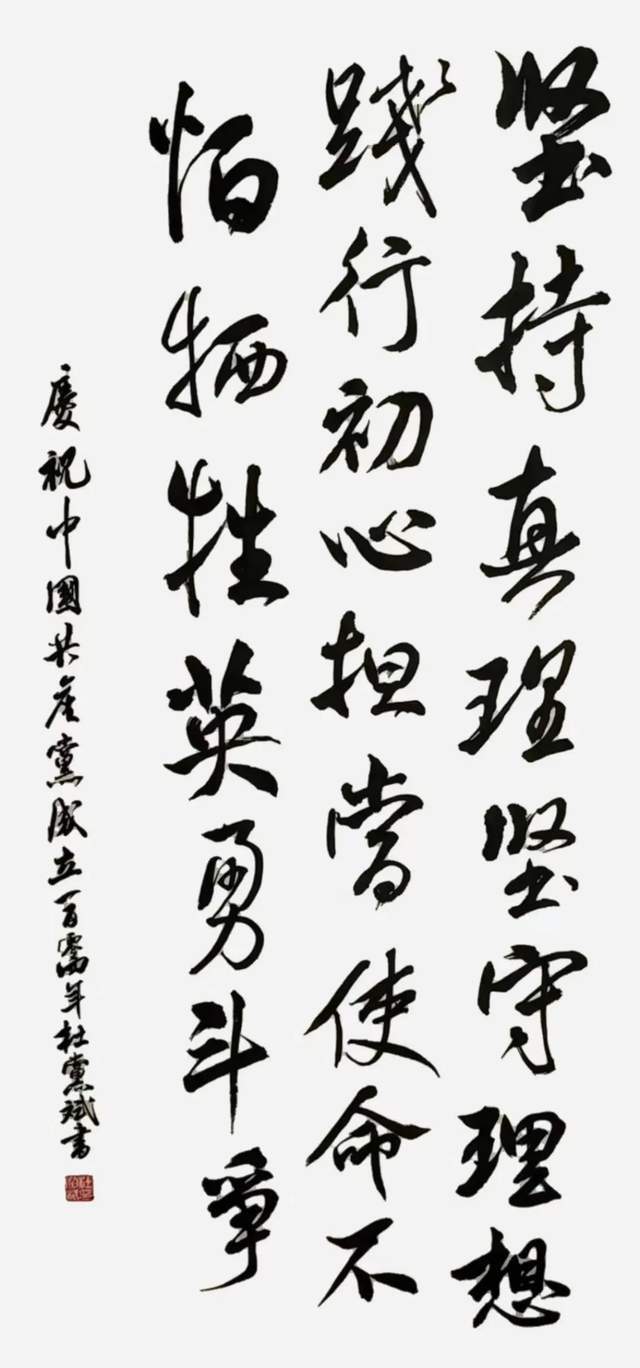 堅持真理堅守理想
踐行初心担當使命不
怕牺牲英勇斗爭
慶祝中國共産黨成立一百零四年杜黨斌書